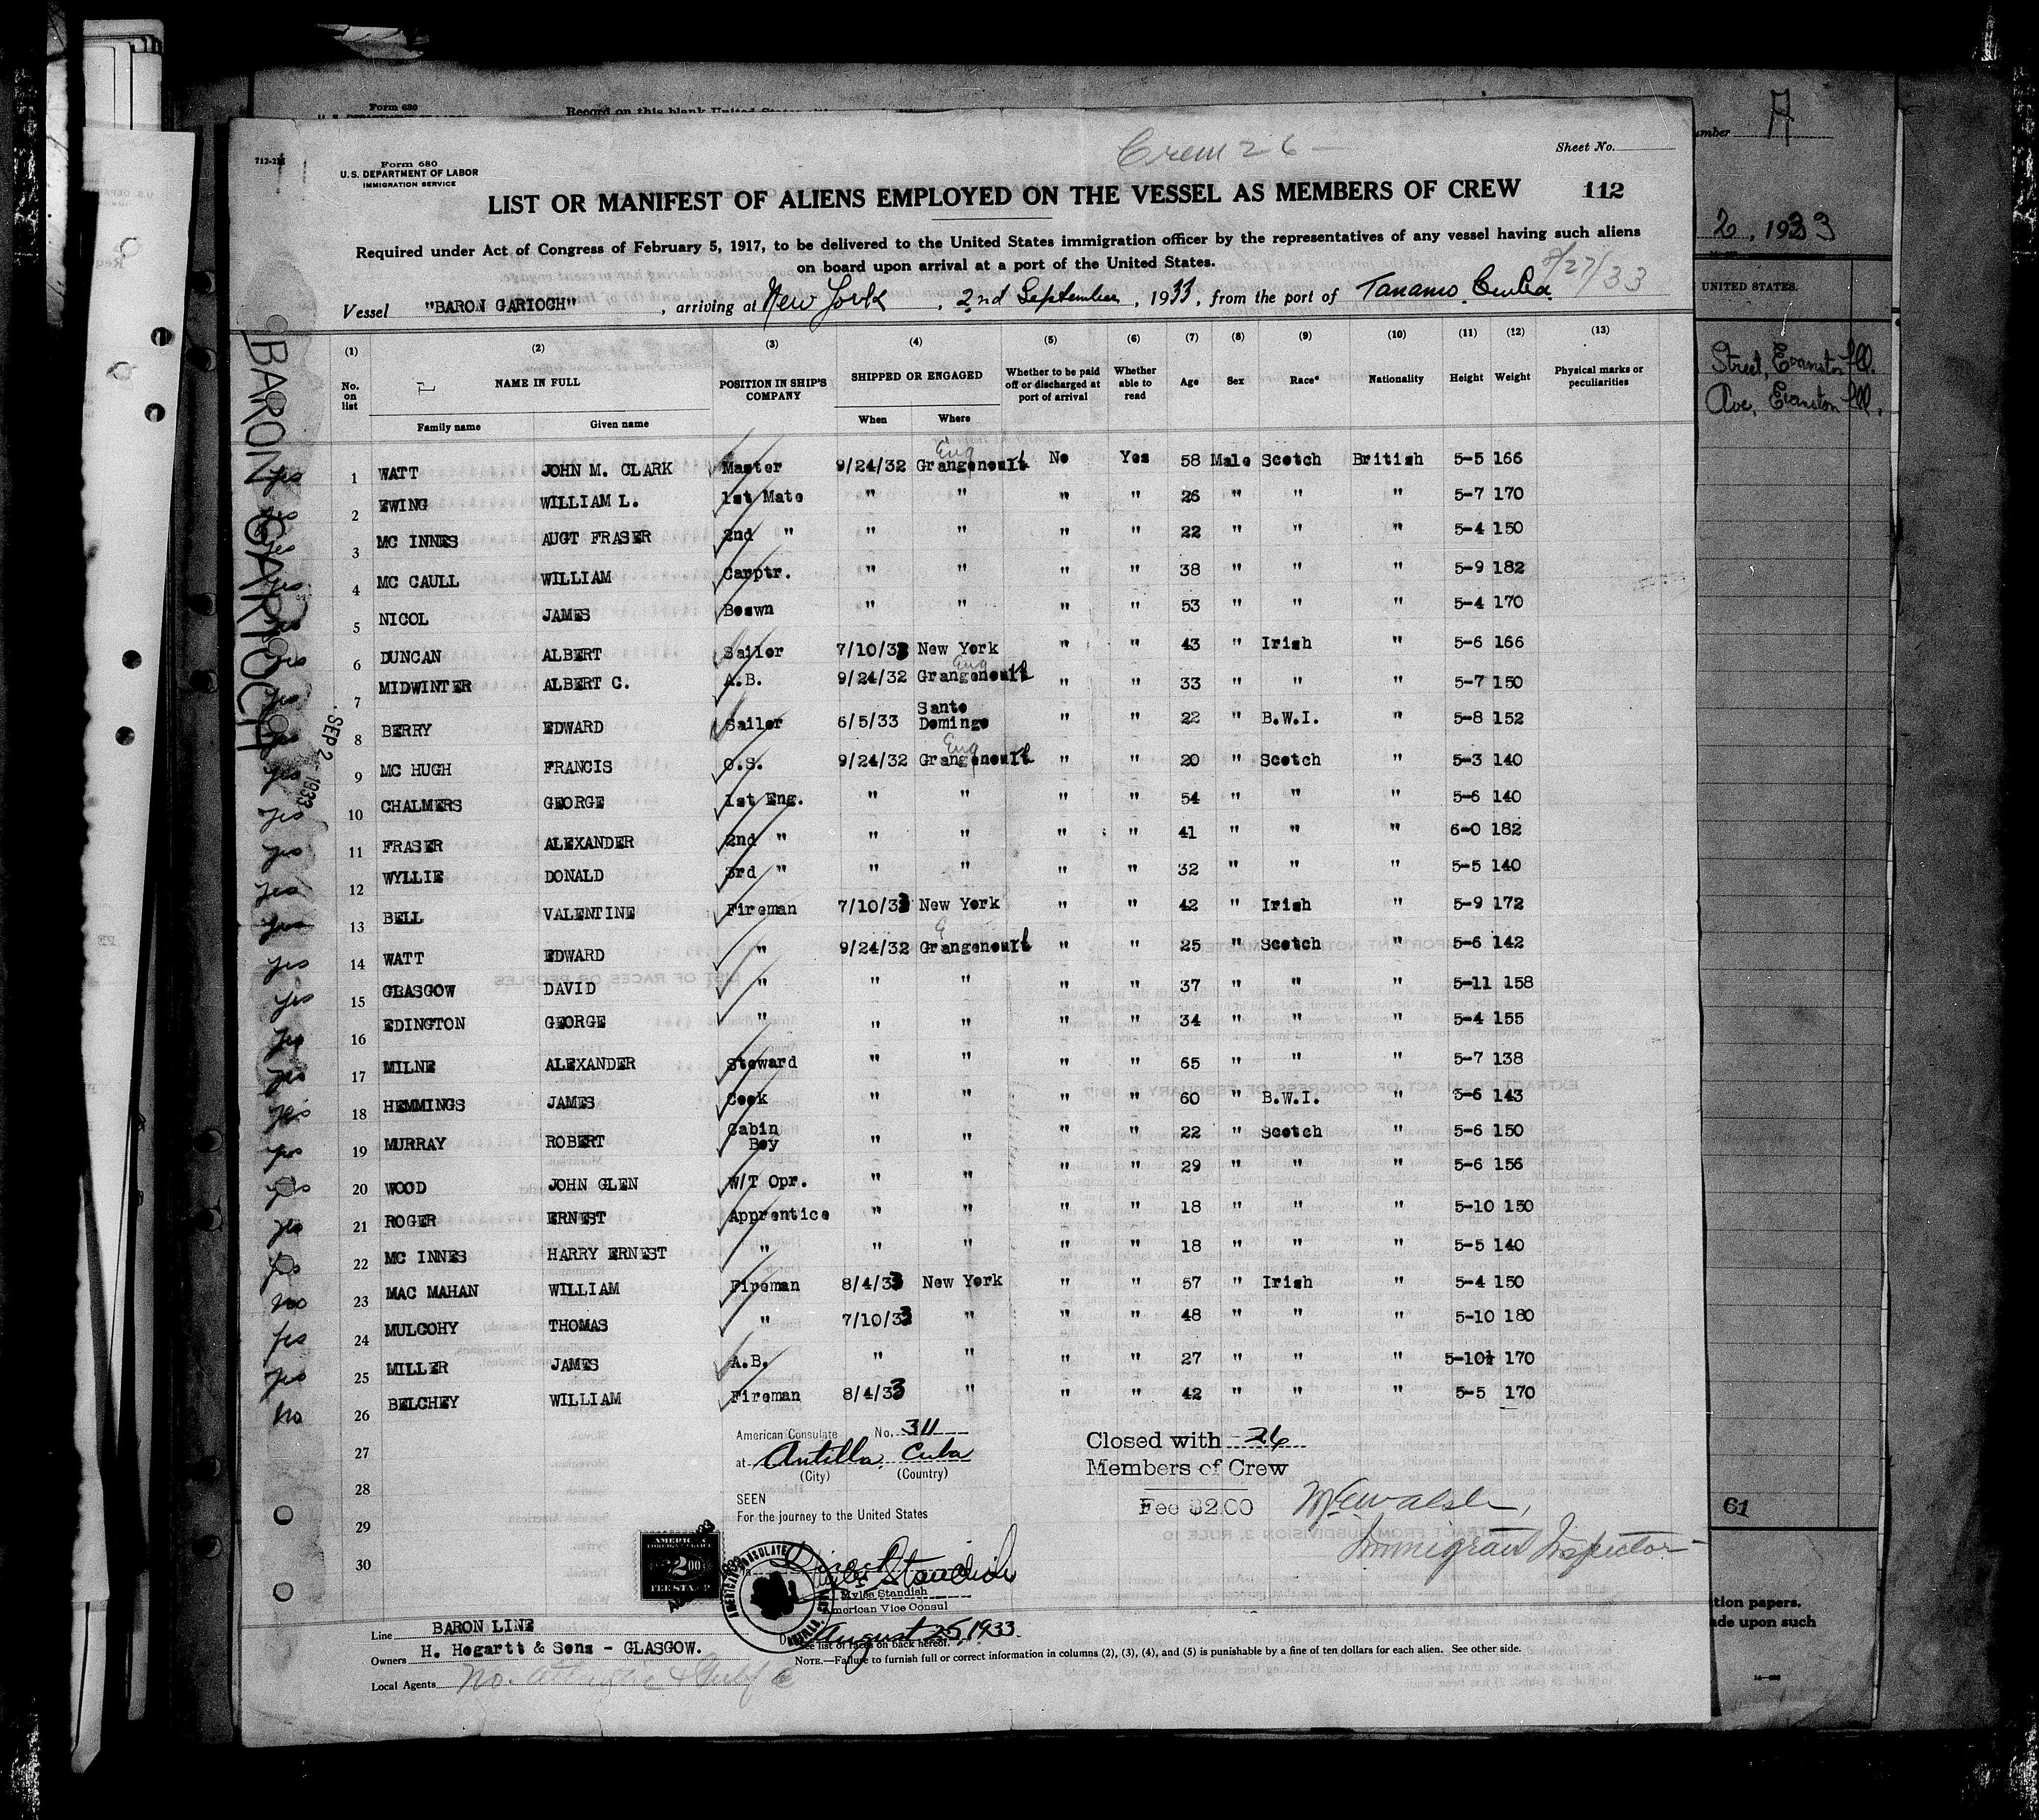 Form 680
Record on this blank United States
712-2
Form 680
U.S. DEPARTMENT OF LABOR
IMMIGRATION SERVICE
Crew 26 —
Sheet No.
LIST OR MANIFEST OF ALIENS EMPLOYED ON THE VESSEL AS MEMBERS OF CREW 112
Required under Act of Congress of February 5, 1917, to be delivered to the United States immigration officer by the representatives of any vessel having such aliens
on board upon arrival at a port of the United States.
8/27/33
Vessel "BARON GARIOCH", arriving at New York, 2nd September, 1933, from the port of Tanamo, Cuba.
(1) (2) (3) (4) (5) (6) (7) (8) (9) (10) (11) (12) (13)
No. on list NAME IN FULL POSITION IN SHIP'S COMPANY SHIPPED OR ENGAGED Whether to be paid off or discharged at port of arrival Whether able to read Age Sex Race* Nationality Height Weight Physical marks or peculiarities
Family name Given name When Where
Eng
yes 1 WATT JOHN M. CLARK Master 9/24/32 Grangemouth No Yes 58 Male Scotch British 5-5 166
2 EWING WILLIAM L. 1st Mate " " " " 26 " " " 5-7 170
yes 3 MC INNES AUGT FRASER 2nd " " " " " 22 " " " 5-4 150
yes 4 MC CAULL WILLIAM Carptr. " " " " 38 " " " 5-9 182
5 NICOL JAMES Boswn " " " " 53 " " " 5-4 170
yes 6 DUNCAN ALBERT Sailor 7/10/33 New York " " 43 " Irish " 5-6 166
Eng
yes 7 MIDWINTER ALBERT C. A.B. 9/24/32 Grangemouth " " 33 " " " 5-7 150
yes 8 BERRY EDWARD Sailor 6/5/33 Santo Domingo " " 22 " B.W.I. " 5-8 152
Eng
yes 9 MC HUGH FRANCIS O.S. 9/24/32 Grangemouth " " 20 " Scotch " 5-3 140
yes 10 CHALMERS GEORGE 1st Eng. " " " " 54 " " " 5-6 140
yes 11 FRASER ALEXANDER 2nd " " " " " 41 " " " 6-0 182
yes 12 WYLLIE DONALD 3rd " " " " " 32 " " " 5-5 140
yes 13 BELL VALENTINE Fireman 7/10/33 New York " " 42 " Irish " 5-9 172
yes 14 WATT EDWARD " 9/24/32 Grangemouth " " 25 " Scotch " 5-6 142
yes 15 GLASGOW DAVID " " " " " 37 " " " 5-11 158
yes 16 EDINGTON GEORGE " " " " " 34 " " " 5-4 155
yes 17 MILNE ALEXANDER Steward " " " " 65 " " " 5-7 138
yes 18 HEMMINGS JAMES Cook " " " " 60 " B.W.I. " 5-6 143
yes 19 MURRAY ROBERT Cabin Boy " " " " 22 " Scotch " 5-6 150
yes 20 WOOD JOHN GLEN W/T Opr. " " " " 29 " " " 5-6 156
yes 21 ROGER ERNEST Apprentice " " " " 18 " " " 5-10 150
yes 22 MC INNES HARRY ERNEST " " " " " 18 " " " 5-5 140
no 23 MAC MAHAN WILLIAM Fireman 8/4/33 New York " " 57 " Irish " 5-4 150
yes 24 MULCOHY THOMAS " 7/10/33 " " " 48 " " " 5-10 180
yes 25 MILLER JAMES A.B. " " " " 27 " " " 5-10½ 170
no 26 BELCHEY WILLIAM Fireman 8/4/33 " " " 42 " " " 5-5 170
27
28
29
30
BARON GARIOCH
SEP 2 1933
American Consulate No. 311
at Antilla, Cuba
(City) (Country)
SEEN
For the journey to the United States
Closed with 26
Members of Crew
Fee $2.00
Immigrant Inspector
AMERICAN
FOREIGN SERVICE
$2.00
FEE STAMP
AMERICAN CONSULATE
ANTILLA, CUBA
Myles Standish
Myles Standish
American Vice Consul
August 25, 1933.
See list of races on back hereof.
Line BARON LINE
Owners H. Hogartt & Sons - GLASGOW.
Local Agents
NOTE.—Failure to furnish full or correct information in columns (2), (3), (4), and (5) is punishable by a fine of ten dollars for each alien. See other side.
umber A
2, 1933
UNITED STATES.
Street, Evanston Ill.
Ave, Evanston Ill.
61
tion papers.
ade upon such